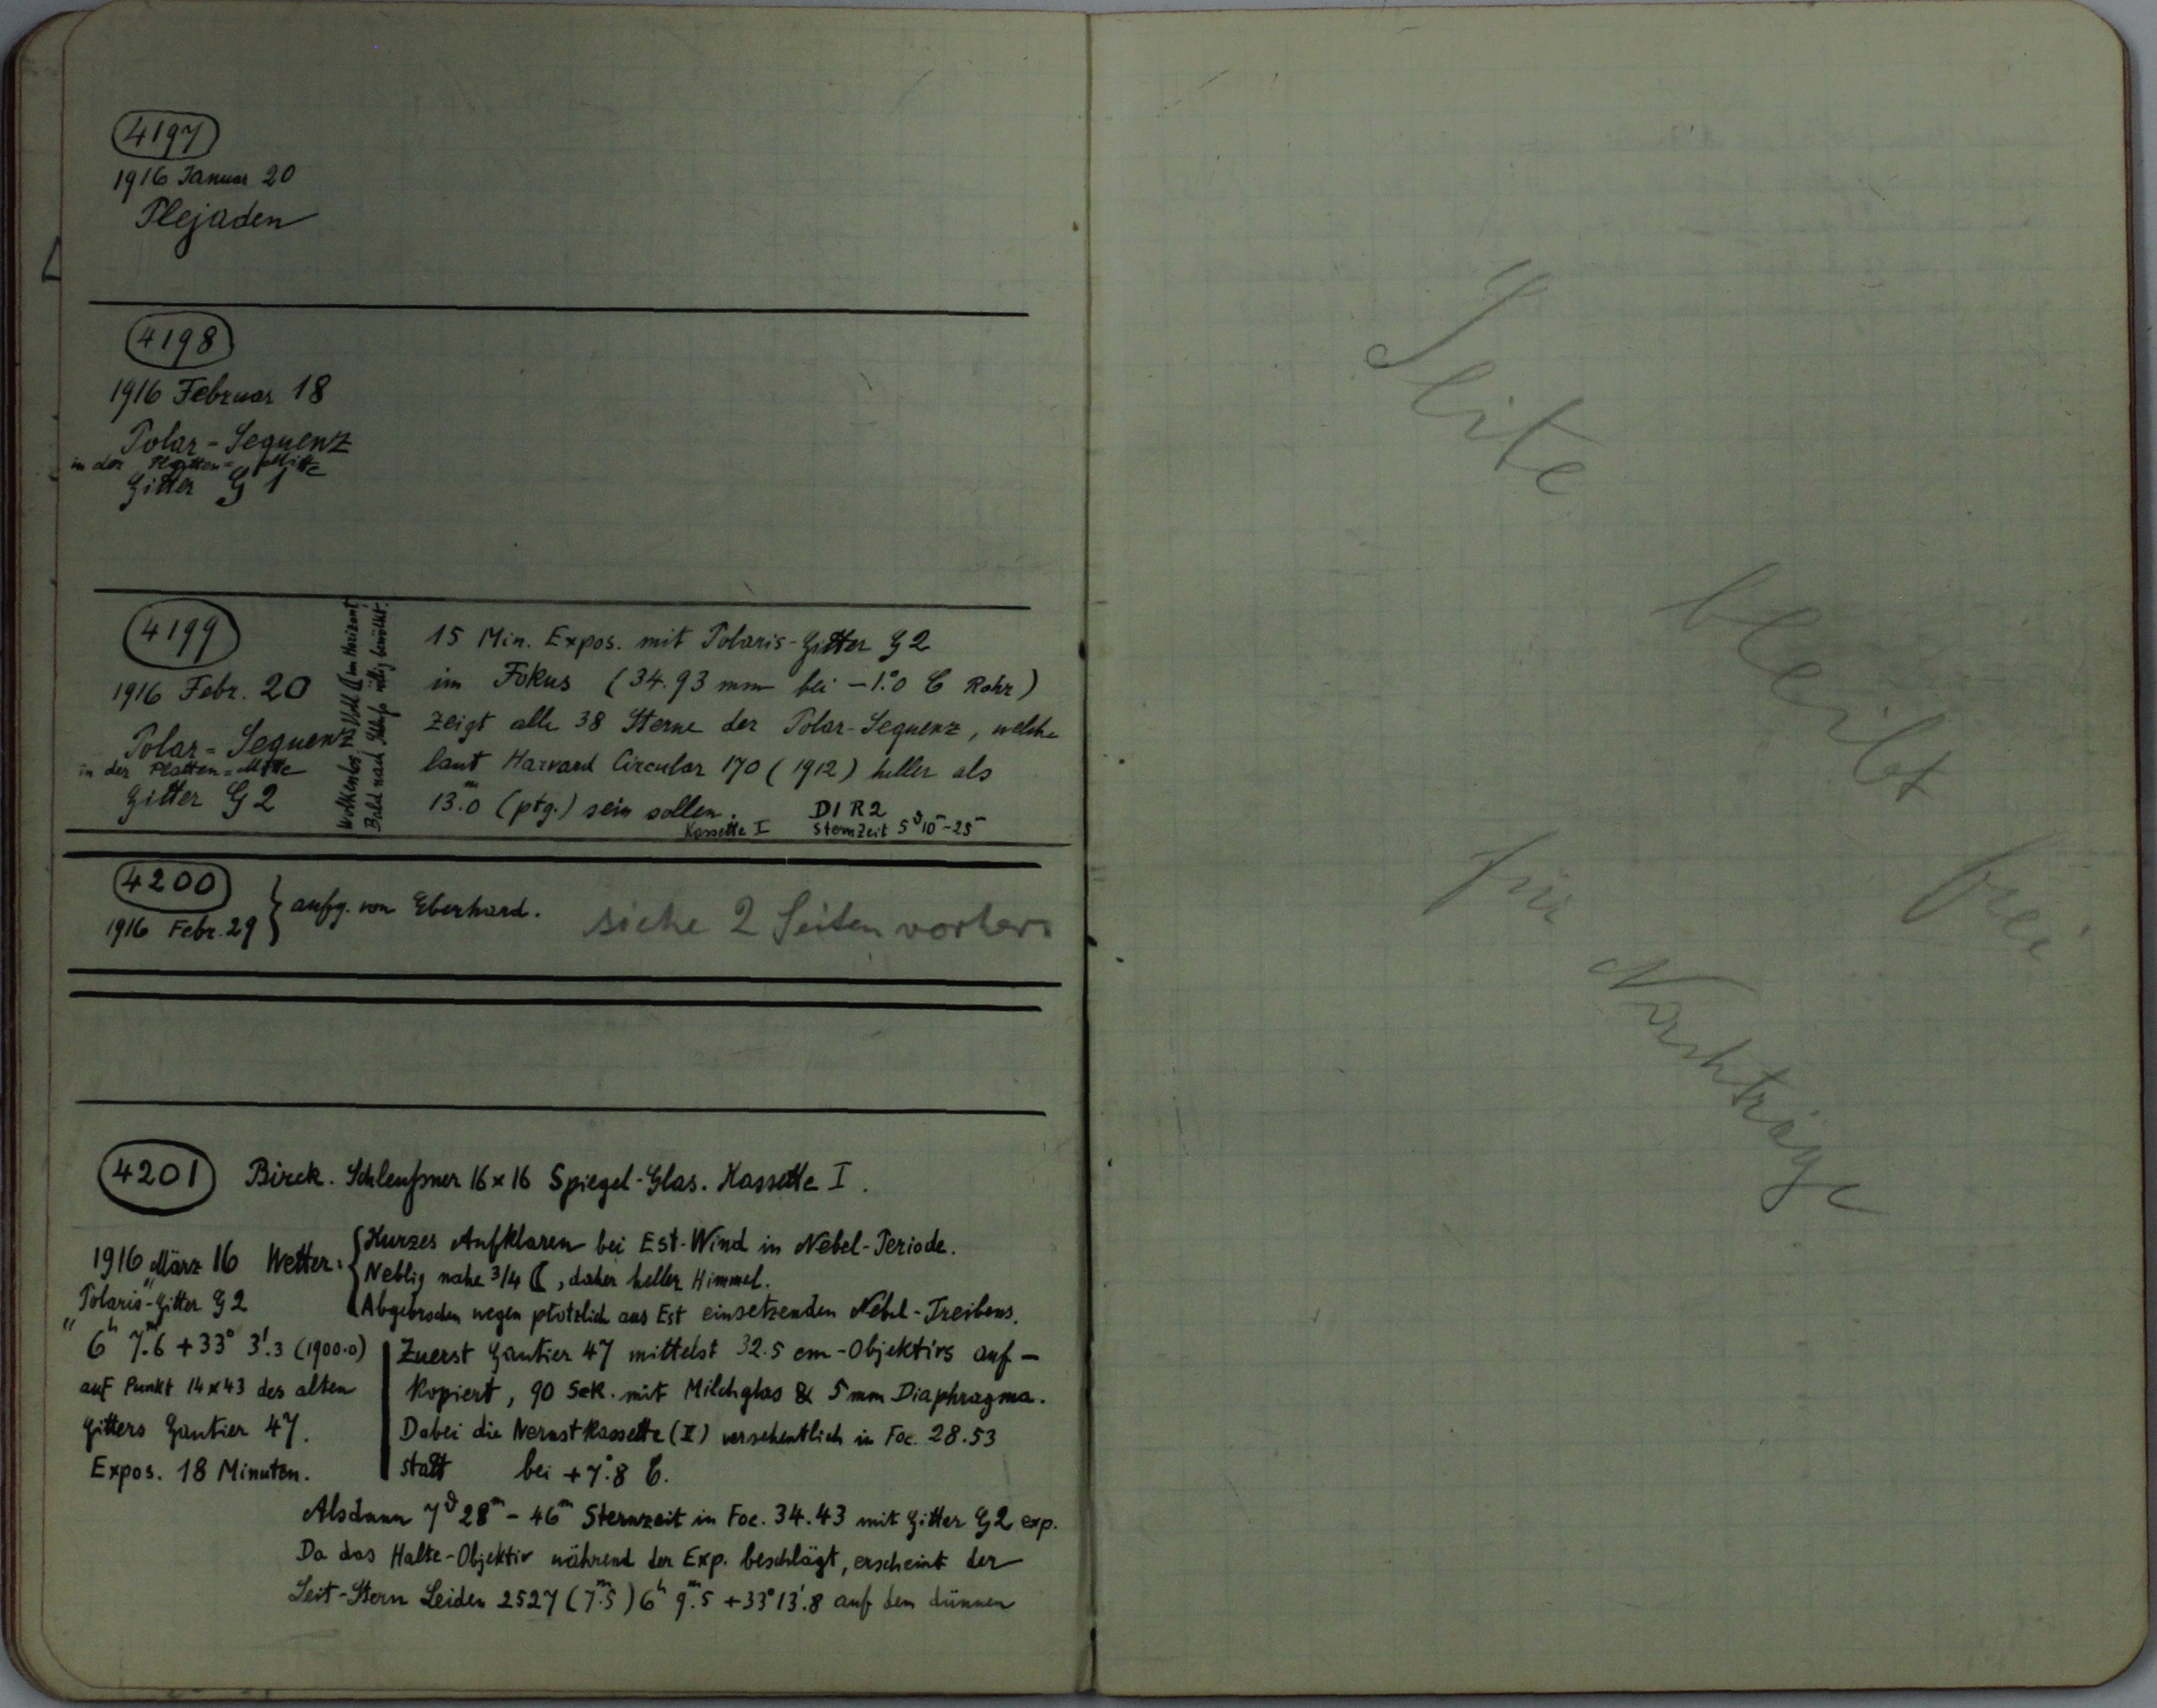 4197
1916 Januar 20
Plejaden
4198
1916 Februar 18
Polar-Sequenz
in der Platten-Mitte
Gitter G 1
4199
1916 Febr. 20
Polar-Sequenz
in der Platten-Mitte
Gitter G 2
Wolkenlos, Voll ☾ im Horizont
Bald nach Schluß völlig bewölkt.
15 Min. Expos. mit Polaris-Gitter G 2
im Fokus (34.93 mm bei -1.°0 C Rohr)
zeigt alle 38 Sterne der Polar-Sequenz, welche
laut Harvard Circular 170 (1912) heller als
13.ᵐ0 (ptg.) sein sollen.
D1 R2
Kassette I
Sternzeit 5ʰ10ᵐ-25ᵐ
4200
1916 Febr. 29
aufg. von Eberhard.
siehe 2 Seiten vorher
4201
Birck. Schleußner 16 x 16 Spiegel-Glas. Kassette I.
1916 März 16 Wetter:
Kurzes Aufklaren bei Est-Wind in Nebel-Periode.
Neblig nahe 3/4 ☾, daher heller Himmel.
Abgebrochen wegen plötzlich aus Est einsetzenden Nebel-Treibens.
"Polaris"-Gitter G 2
6ʰ 7.ᵐ6 +33° 3'.3 (1900.0)
auf Punkt 14 x 43 des alten
Gitters Gautier 47.
Expos. 18 Minuten.
Zuerst Gautier 47 mittelst 32.5 cm-Objektivs auf-
kopiert, 90 Sek. mit Milchglas & 5 mm Diaphragma.
Dabei die Nernstkassette (II) versehentlich in Foc. 28.53
statt bei +7.°8 C.
Alsdann 7ʰ 28ᵐ - 46ᵐ Sternzeit in Foc. 34.43 mit Gitter G 2 exp.
Da das Halte-Objektiv während der Exp. beschlägt, erscheint der
Leit-Stern Leiden 2527 (7.ᵐ5) 6ʰ 9.ᵐ5 +33° 13'.8 auf dem dünnen
Seite
bleibt
frei
für
Nachträge